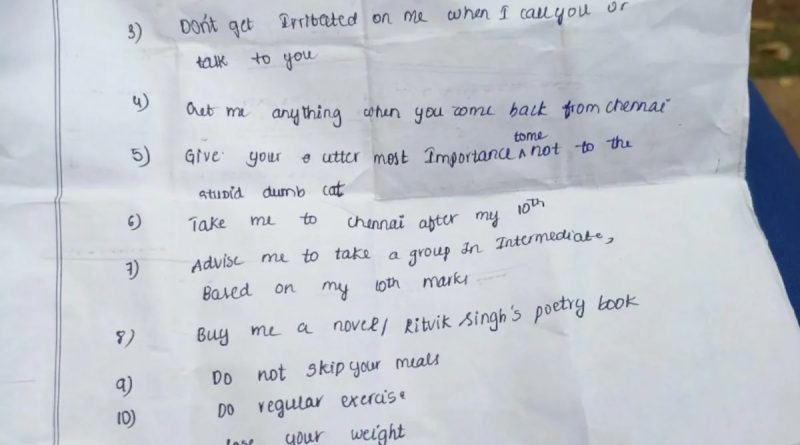 3) Don't get Irritated on me when I call you or
talk to you
4) Get me anything when you come back from chennai
5) Give your utter most Importance ^ tome not to the
stupid dumb cat
6) Take me to chennai after my 10th
7) Advise me to take a group In Intermediate,
Based on my 10th marks
8) Buy me a novel/ Ritvik Singh's poetry book
9) Do not skip your meals
10) Do regular exercise
your weight